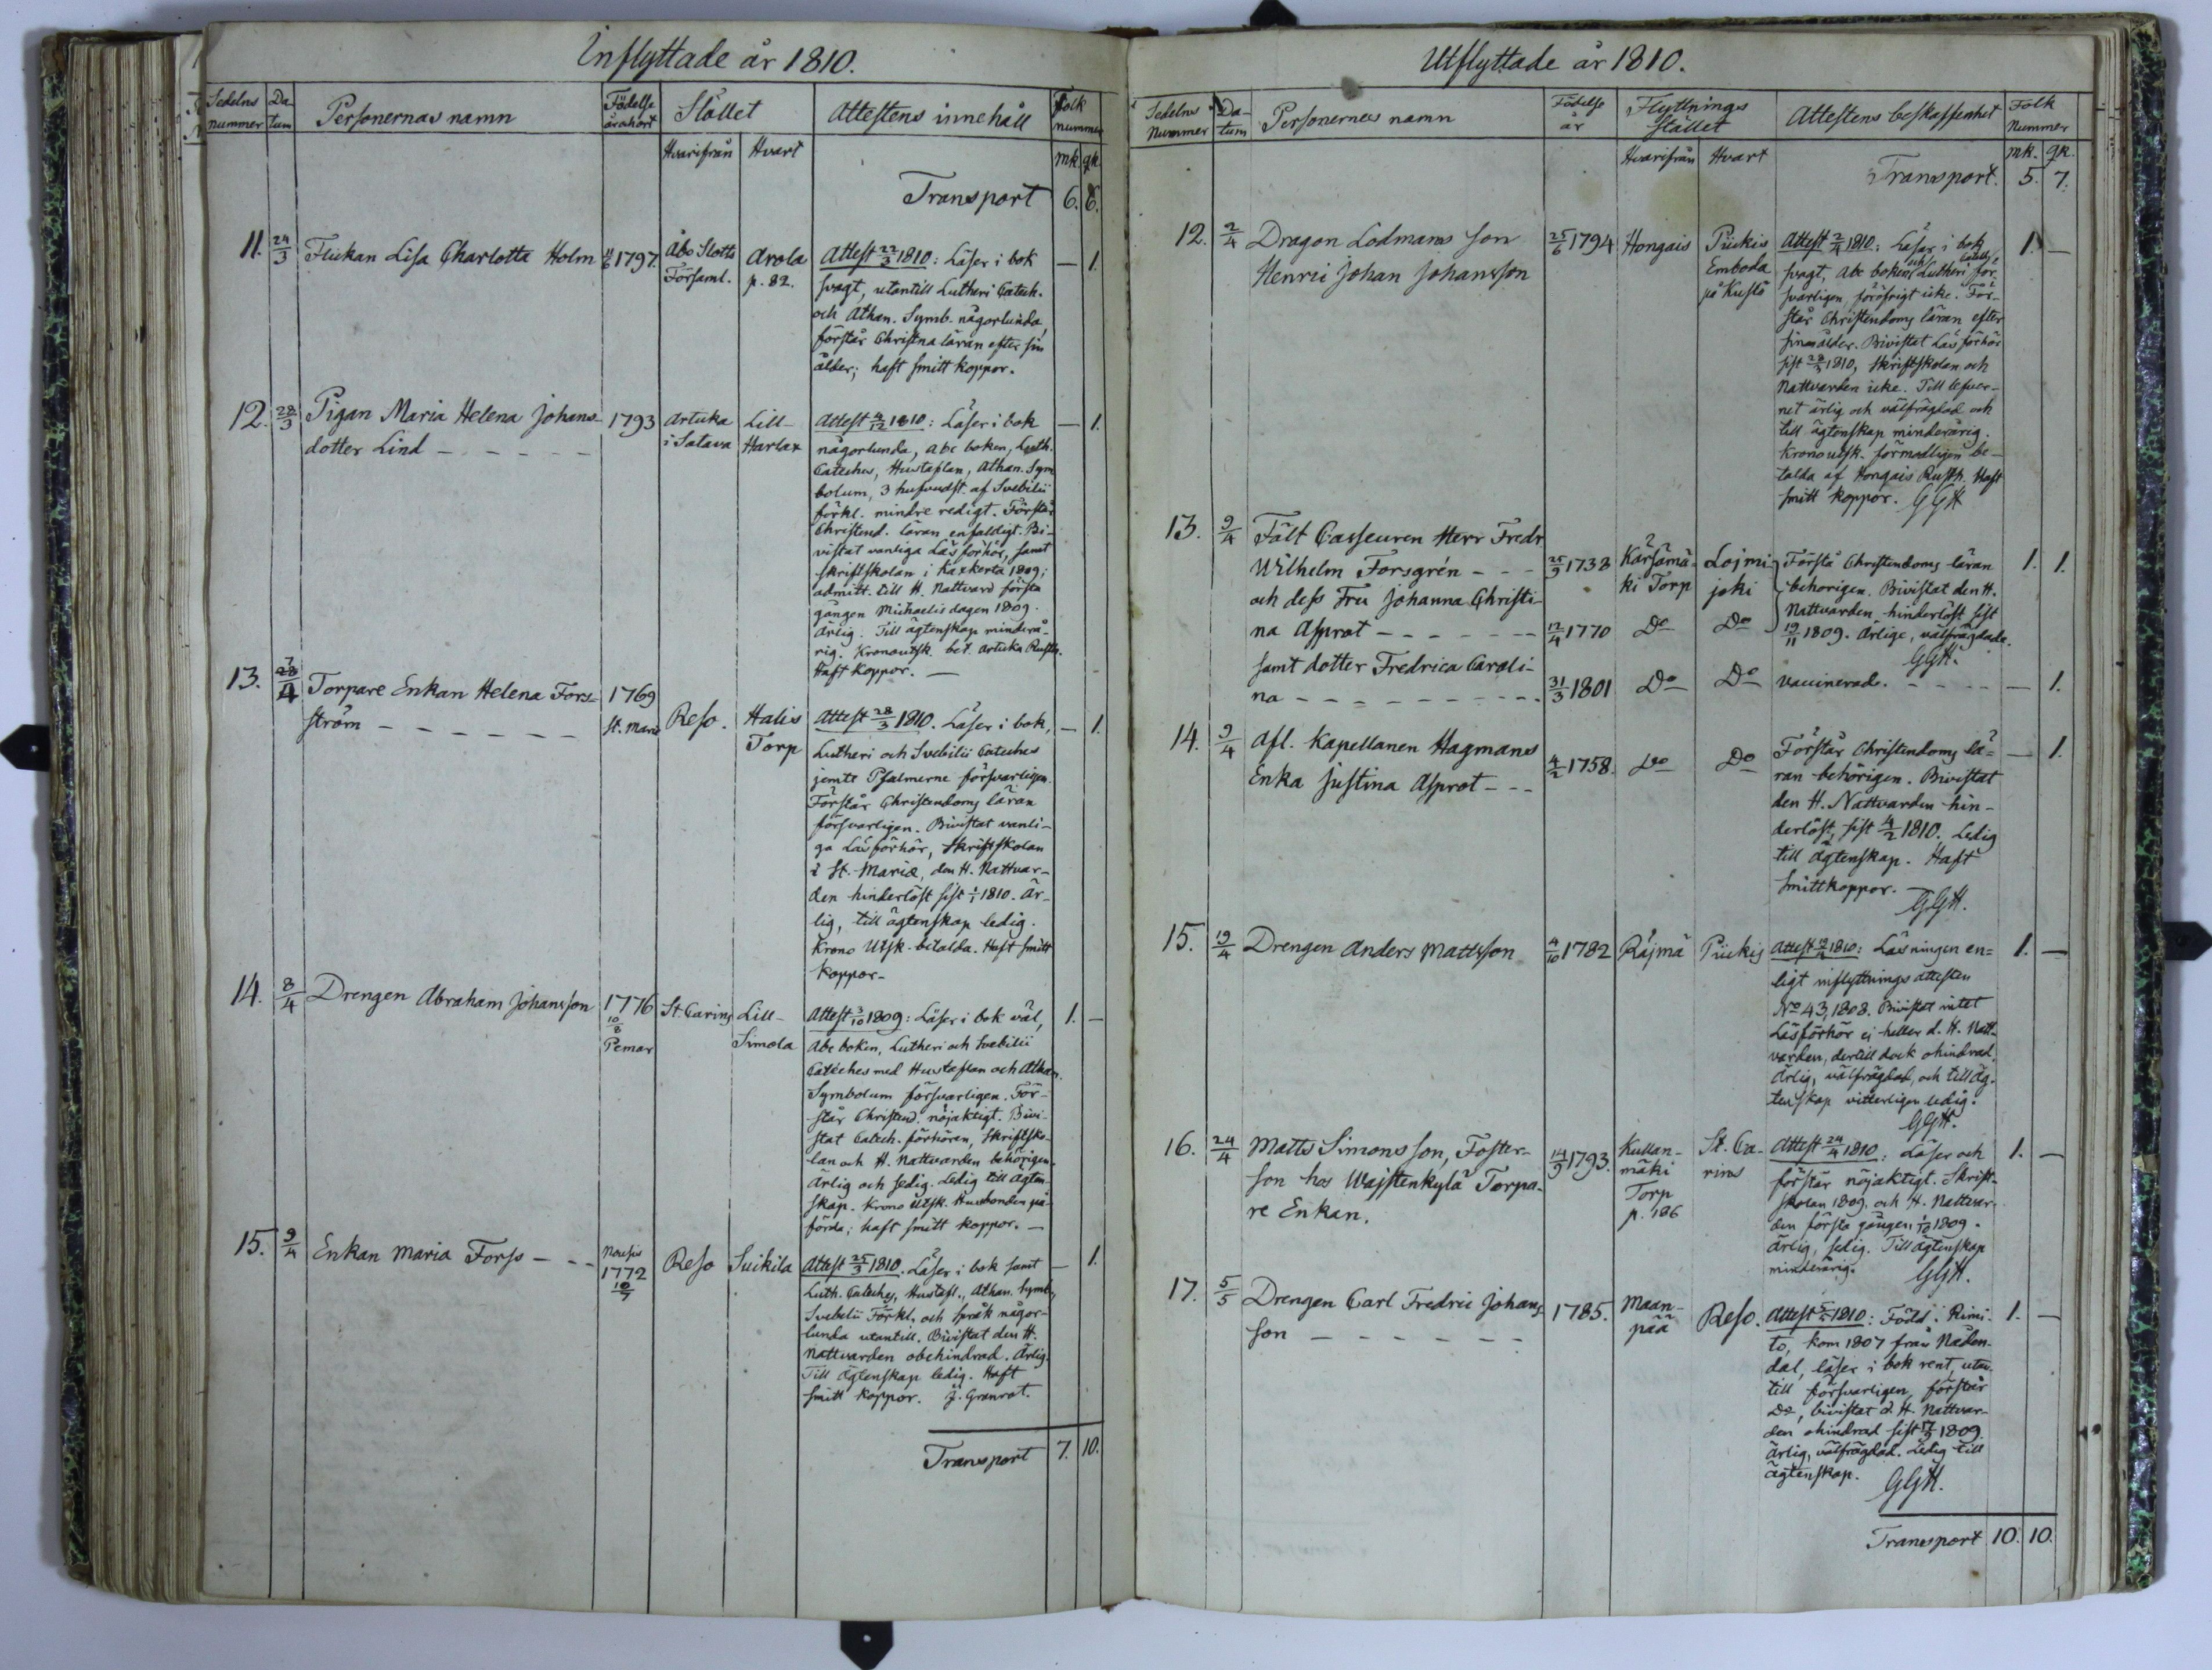 Inflyttade år 1810.
Sedelns nummer Datum Personernas namn Födelse år och ort Stället Attestens innehåll Folk nummer
Hvarifrån Hvart mk qk
Transport 6. 6.
11. 24/3 Flickan Lisa Charlotta Holm 1797. Åbo Slotts Arola Attest 22/3 1810: Läser i bok — 1.
Församl. p. 82. svagt, utantill Lutheri Catech.
och Athan. Symb. någorlunda,
förstår Christna läran efter sin
ålder; haft smitt koppor.
12. 28/3 Pigan Maria Helena Johans- 1793 Artuka Lill- Attest 4/12 1810: Läser i bok — 1.
dotter Lind - - - - - i Satava Harlax någorlunda, Abc boken, Luth.
Cateches, Hustaflan, Athan. Sym
bolum, 3 hufvudst. af Svebilii
förkl. mindre redigt. Förstår
Christend. läran enfaldigt. Bi-
vistat vanliga Läsförhör, samt
skriftskolan i Kakskerta 1809;
admitt. till H. Nattvard första
gången Michaelis dagen 1809.
Ärlig. Till ägtenskap minderå-
rig. Kronoutsk. bet. Artuka Rusth.
Haft koppor. —
13. 7/4 Torpare Enkan Helena Fors- 1769 Reso. Halis Attest 28/3 1810. Läser i bok, — 1.
ström - - - - - - St. Marie Torp Lutheri och Svebilii Cateches
jemte Psalmerne försvarligen.
Förstår Christendoms läran
försvarligen. Bivistat vanli-
ga Läsförhör, Skriftskolan
i St. Mariæ, den H. Nattvar-
den hinderlöst sist 1/1 1810. Är-
lig, till ägtenskap ledig.
Krono Utsk. betalda. Haft smitt
koppor-
14. 8/4 Drengen Abraham Johansson 1776 St. Carins Lill- Attest 3/10 1809: Läser i bok väl, 1. —
10/8 Simola Abc boken, Lutheri och Svebilii
Pemar Cateches med Hustaflan och Athan.
Symbolum försvarligen. För-
står Christend. nöjaktigt. Bivi-
stat Catech. förhören, Skriftsko-
lan och H. Nattvarden behörigen.
Ärlig och sedig. Ledig till ägten-
skap. Krono Utsk. Husbonden på-
förda; haft smitt koppor. —
15. 9/4 Enkan Maria Forss - - - Nousis Reso Suikila Attest 25/3 1810. Läser i bok samt — 1.
1772 Luth. Cateches, Hustafl., Athan. Symb.,
10/7 Svebilii Förkl. och Språk någor-
lunda utantill. Bivistat den H.
Nattvarden obehindrad. Ärlig.
Till ägtenskap ledig. Haft
smitt koppor. J. Granrot.
Transport 7. 10.
Utflyttade år 1810.
Sedelns Nummer Datum Personernas namn Födelse år Flyttnings stället Attestens beskaffenhet Folk Nummer
Hvarifrån Hvart mk. qk.
Transport. 5. 7.
12. 2/4 Dragon Lodmans Son 25/6 1794 Hongais Piikis Attest 2/4 1810: Läser i bok 1. —
Henric Johan Johansson Emboda svagt, Abc boken och Lutheri Catech. för-
på Kustö svarligen, föröfrigt icke. För-
står Christendoms läran efter
sin ålder. Bivistat Läsförhör
sist 28/3 1810, Skriftskolan och
Nattvarden icke. Till lefver-
net ärlig och välfrägdad och
till ägtenskap minderårig.
Kronoutsk. förmodligen be-
talda af Hongais Rusth. Haft
smitt koppor. GGH
13. 9/4 Fält Casseuren Herr Fredr
Wilhelm Forsgrén - - - 25/9 1738 Kärsämä- Lojmi- Förstå Christendoms läran 1. 1.
och dess Fru Johanna Christi- ki Torp joki behörigen. Bivistat den H.
na Asprot - - - - - - 12/4 1770 Do Do Nattvarden hinderlöst sist
19/11 1809. Ärlige, välfrägdade.
GGH.
samt dotter Fredrica Caroli-
na - - - - - - - - 31/3 1801 Do Do vaccinerad. - - - - — 1.
14. 9/4 Afl. Kapellanen Hagmans 4/2 1758. Do Do Förstår Christendoms lä- — 1.
Enka Justina Asprot - - - ran behörigen. Bivistat
den H. Nattvarden hin-
derlöst, sist 4/2 1810. Ledig
till ägtenskap. Haft
smittkoppor.
GGH.
15. 19/4 Drengen Anders Mattsson 4/10 1782 Räjmä Piikis Attest 19/4 1810: Läsningen en- 1. —
ligt inflyttnings attesten
No 43, 1808. Bivistat intet
Läsförhör ej heller d. H. Natt-
varden, dertill dock ohindrad.
Ärlig, välfrägdad, och till äg-
tenskap vitterligen ledig.
GGH.
16. 24/4 Matts Simonsson, Foster- 14/9 1793. Kullan- St. Ca- Attest 24/4 1810: Läser och 1. —
son hos Wäjstenkylä Torpa- mäki rins förstår nöjaktigt. Skrift-
re Enkan. Torp skolan 1809, och H. Nattvar-
p. 186 den första gången 1/10 1809.
Ärlig, sedig. Till ägtenskap
minderårig. GGH.
17. 5/5 Drengen Carl Fredric Johans- 1785. Maan- Reso. Attest 5/5 1810: Född i Rimi- 1. —
son - - - - - - - pää to, kom 1807 från Nåden-
dal, läser i bok rent, utan-
till försvarligen, förstår
Do, bivistat d. H. Nattvar-
den ohindrad sist 1809.
Ärlig, välfrägdad. Ledig till
ägtenskap. GGH.
Transport 10. 10.